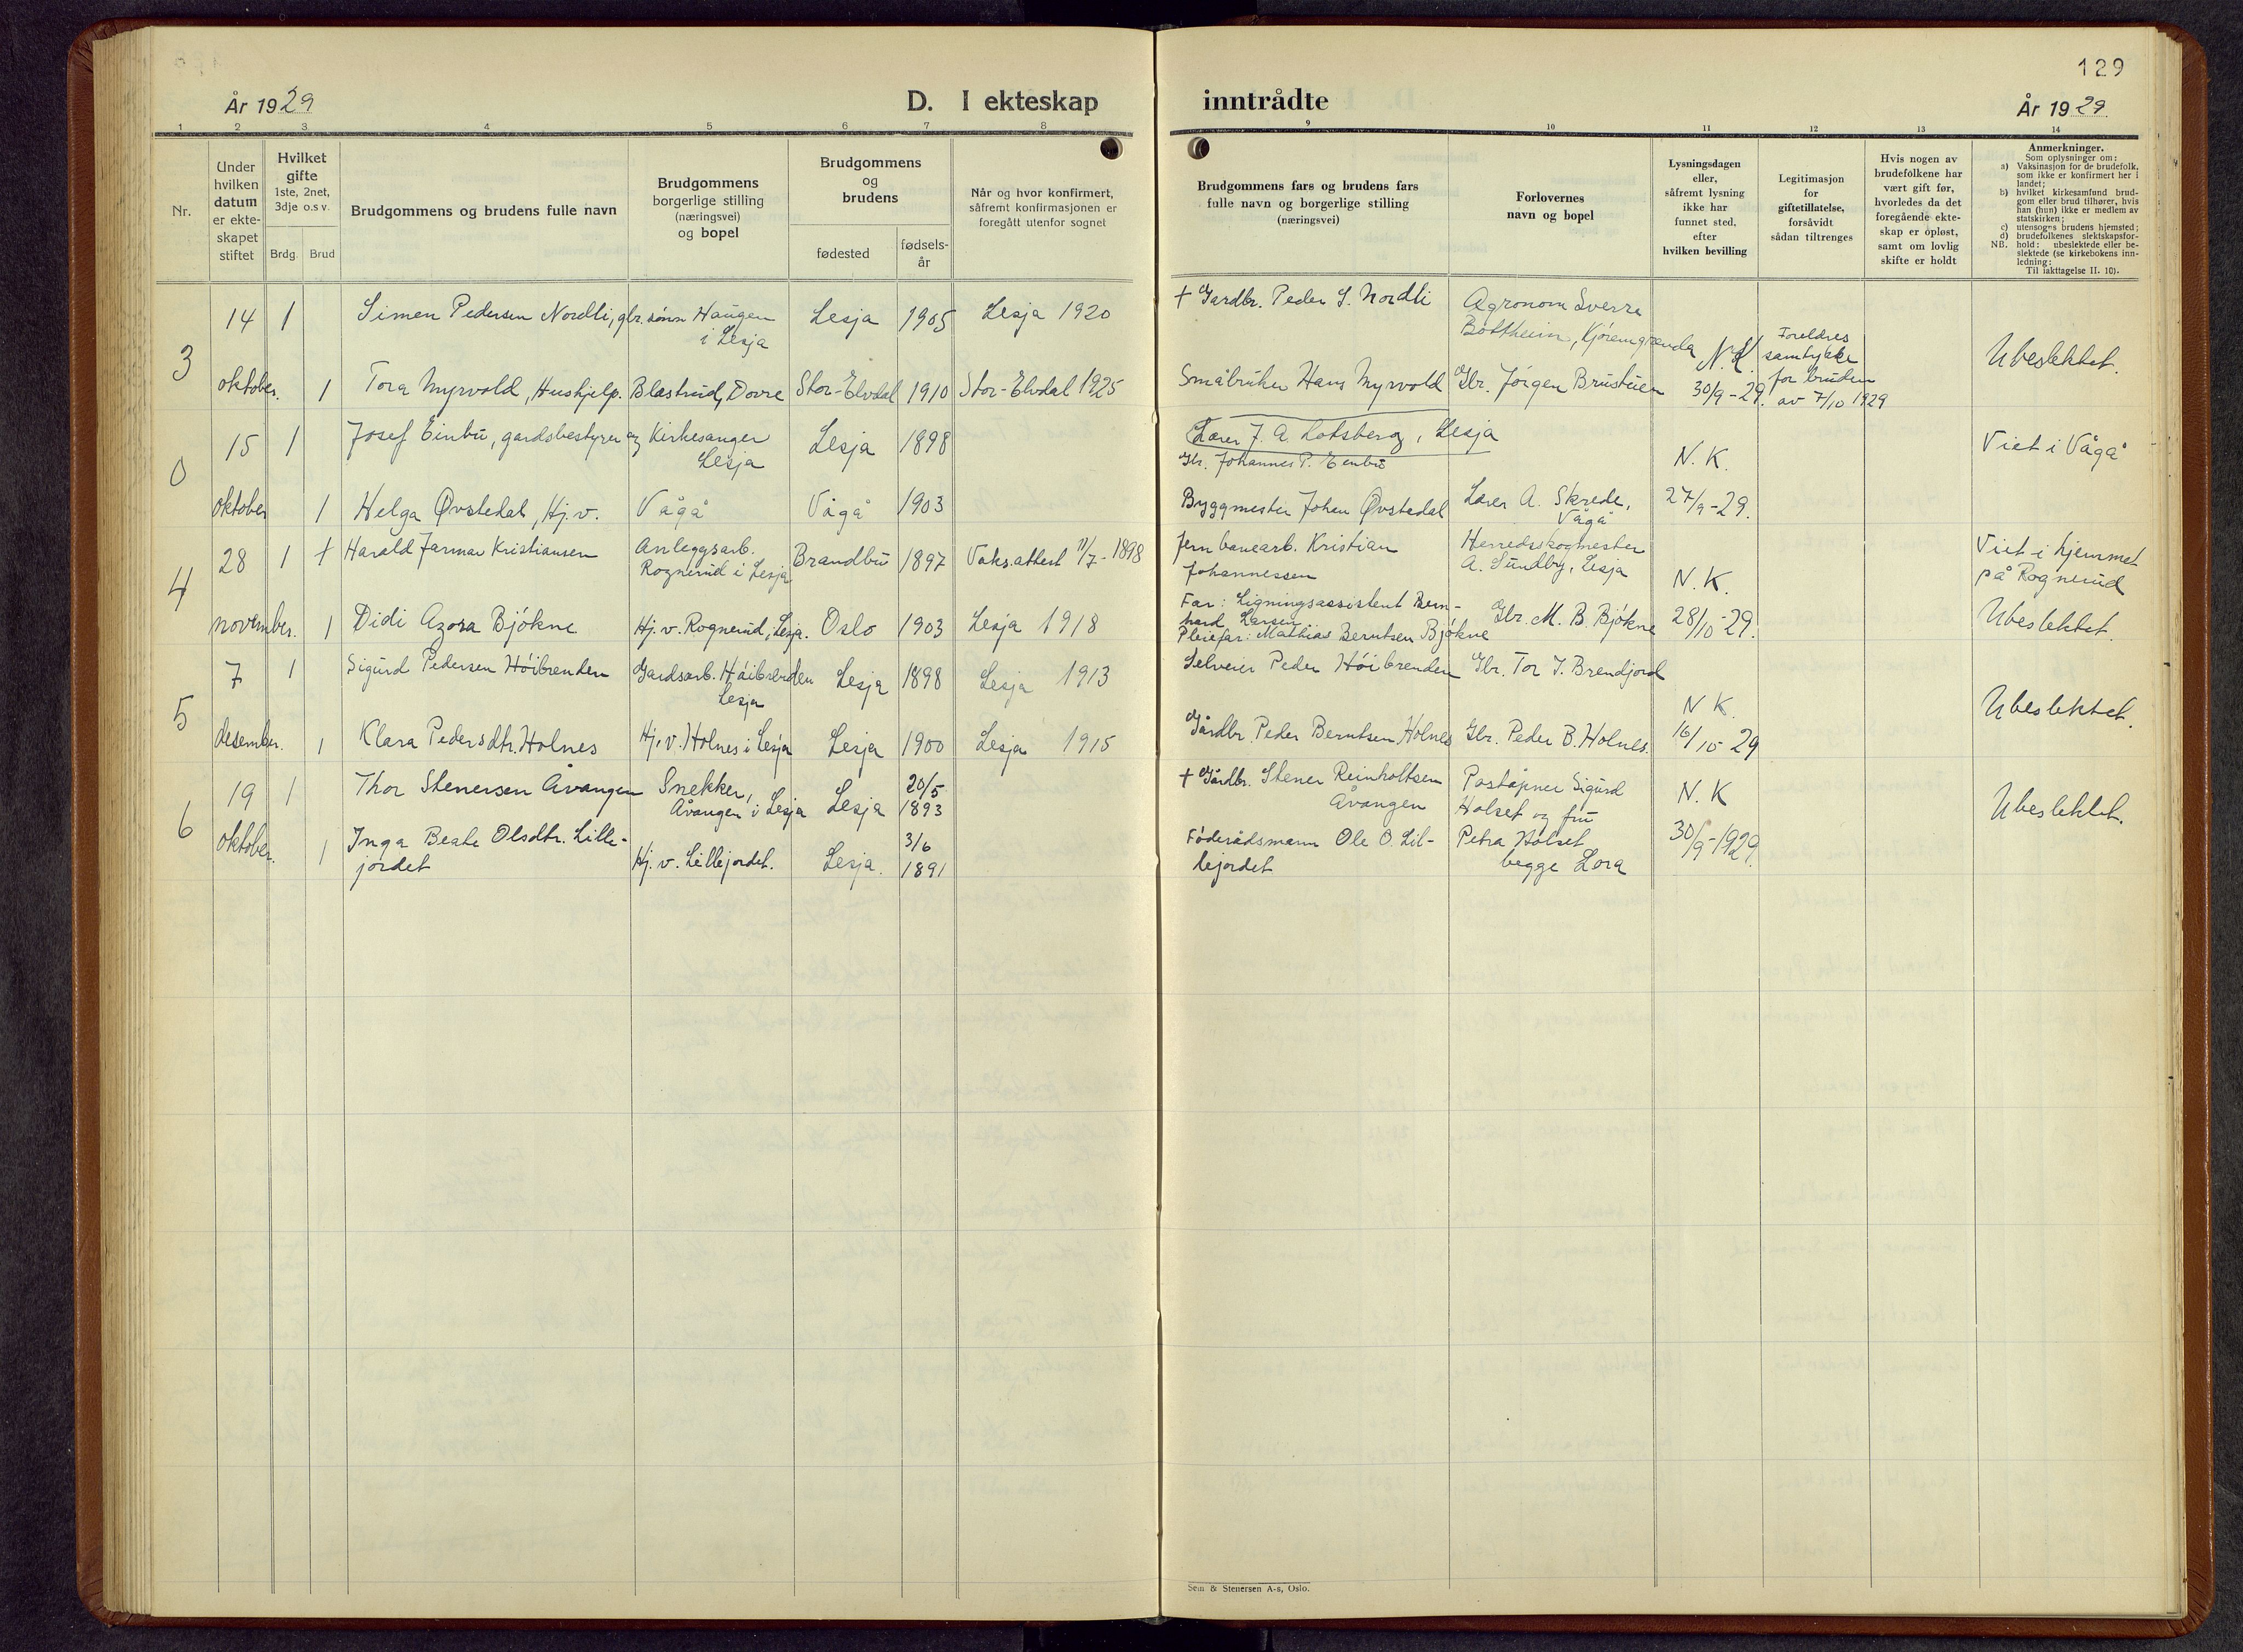 År 1929
D. I ekteskap
1 2 3 4 5 6 7 8
Nr.
Under hvilken datum er ekteskapet stiftet
Hvilket gifte
1ste, 2net, 3dje o.s v.
Brdg. Brud
Brudgommens og brudens fulle navn
Brudgommens borgerlige stilling (næringsvei) og bopel
Brudgommens og brudens
fødested
fødsels-år
Når og hvor konfirmert, såfremt konfirmasjonen er foregått utenfor sognet
3
14 1 Simen Pedersen Nordli, gbr. sønn Haugen Lesja 1905 Lesja 1920
i Lesja
oktober. 1 Tora Myrvold, Hushjelp. Blastrud, Dovre Stor-Elvdal 1910 Stor-Elvdal 1925
0
15 1 Josef Einbu, gardsbestyrer og Kirkesanger Lesja 1898
Lesja
oktober 1 Helga Øvstedal, Hj.v. Vågå Vågå 1903
4
28 1 Harald Jarmar Kristiansen Anleggsarb. Brandbu 1897 Vaks.attest 11/7-1898
Rognerud i Lesja
november. 1 Didi Azora Bjökne Hj.v. Rognerud, Lesja. Oslo 1903 Lesja 1918
5
7 1 Sigurd Pedersen Höibrenden Gardsarb. Höibrenden Lesja 1898 Lesja 1913
Lesja
desember. 1 Klara Pedersdtr. Holnes Hj.v. Holnes i Lesja Lesja 1900 Lesja 1915
6
19 1 Thor Stenersen Åvangen Snekker, Lesja 20/5
Åvangen i Lesja 1893
oktober. 1 Inga Beate Olsdtr. Lille- 3/6
jordet Hj.v. Lillejordet. Lesja. 1891
129
inntrådte
År 1929.
9 10 11 12 13 14
Brudgommens fars og brudens fars fulle navn og borgerlige stilling (næringsvei)
Forlovernes navn og bopel
Lysningsdagen eller, såfremt lysning ikke har funnet sted, efter hvilken bevilling
Legitimasjon for giftetillatelse, forsåvidt sådan tiltrenges
Hvis nogen av brudefolkene har vært gift før, hvorledes da det foregående ekteskap er opløst, samt om lovlig skifte er holdt
Anmerkninger.
Som oplysninger om:
a) Vaksinasjon for de brudefolk, som ikke er konfirmert her i landet;
b) hvilket kirkesamfund brudgom eller brud tilhører, hvis han (hun) ikke er medlem av statskirken;
c) utensogns brudens hjemsted;
d) brudefolkenes slektskapsforhold: ubeslektede eller beslektede (se kirkebokens innledning:
NB.
Til iakttagelse II. 10).
+ Gardbr. Peder S. Nordli Agronom Sverre
Bottheim, Kjöremgrenda N.K. Foreldres
samtykke Ubeslektet.
Småbruker Hans Myrvold Gbr. Jörgen Brustuen 30/9-29. for bruden
av 7/10 1929
Lærer J. A. Lotsberg, Lesja
Gbr. Johannes P. Einbu N.K. Viet i Vågå
Byggmester Johan Øvstedal Lærer A. Skrede, 27/9-29.
Vågå
Jernbanearb. Kristian Herredsskogmester Viet i hjemmet
Johannessen A. Sundby, Lesja N.K. på Rognerud
Far: Ligningsassistent Bern-
hard Larsen Gbr. M. B. Bjökne 28/10-29. Ubeslektet.
Pleiefar: Mathias Berntsen Bjökne
Selveier Peder Höibrenden Gbr. Tor J. Brendjord
N K. Ubeslektet.
Gårdbr. Peder Berntsen Holnes Gbr. Peder B. Holnes. 16/10-29
+ Gårdbr. Stener Reinholtsen Poståpner Sigurd N.K
Åvangen Holset og fru Ubeslektet.
Föderådsmann Ole O. Lil- Petra Holset 30/9-1929.
lejordet begge Lora
Sem & Stenersen A-s, Oslo.